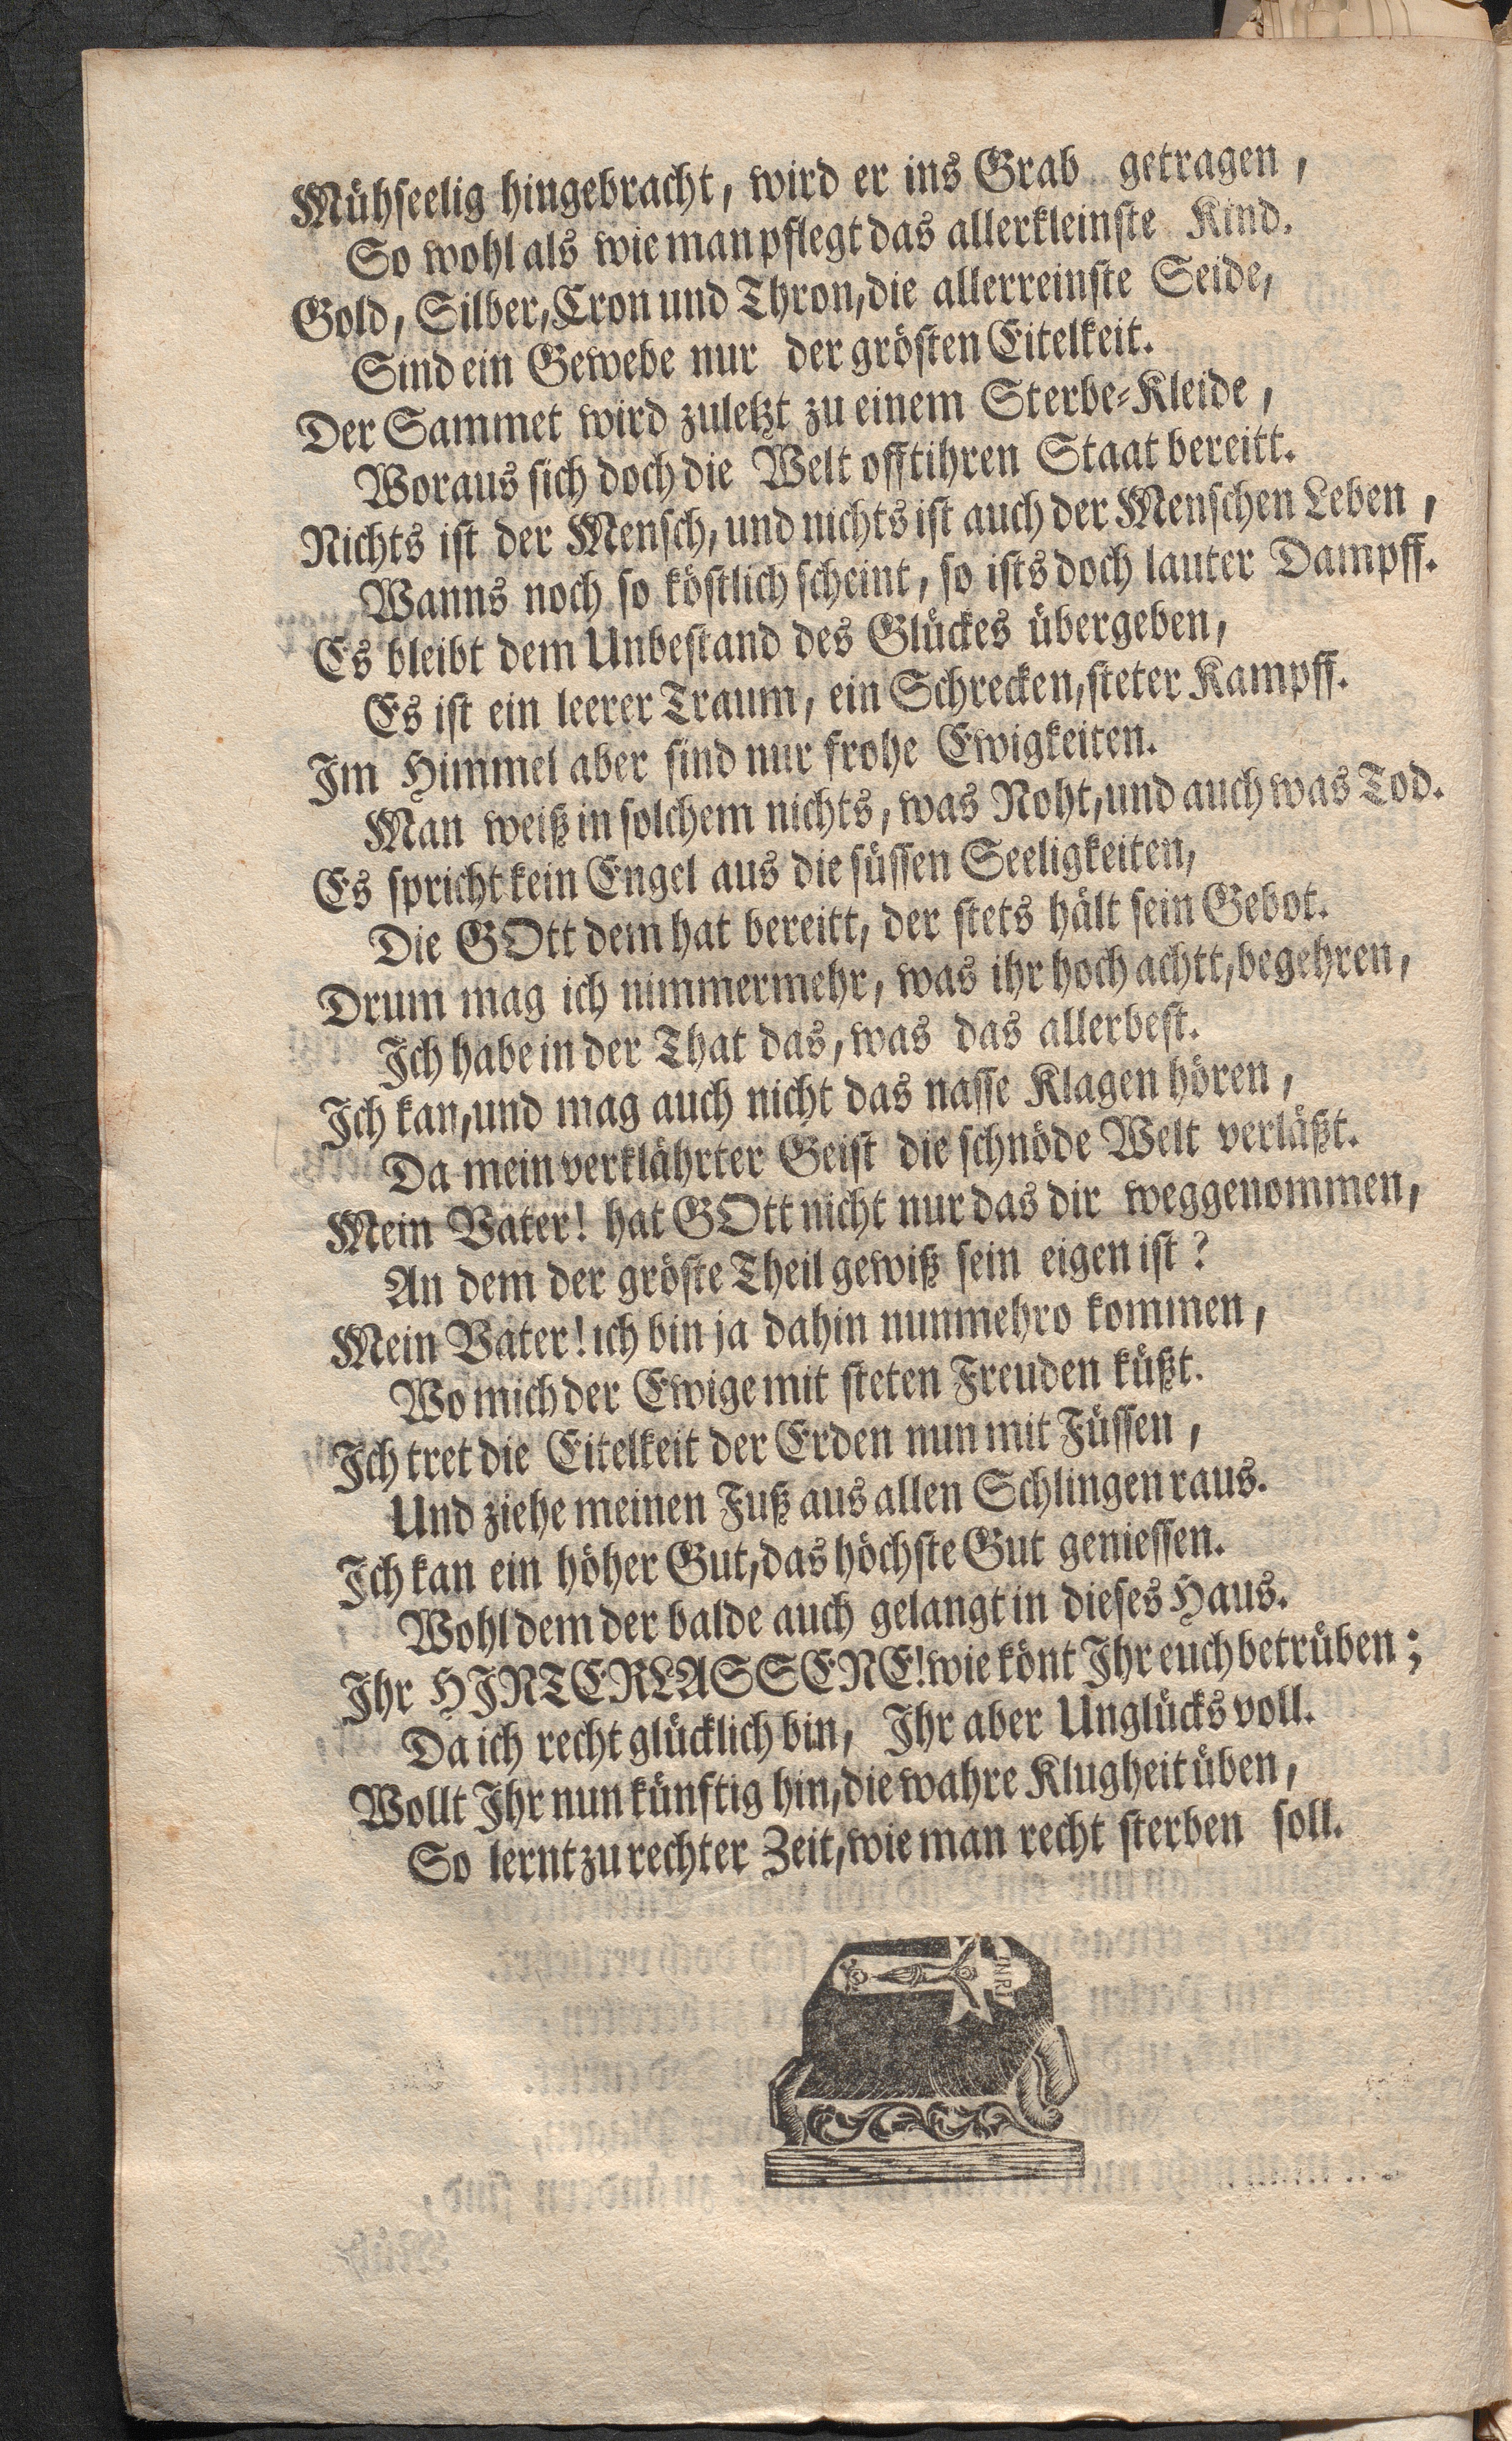 Mühseelig hingebracht, wird er ins Grab getragen,
So wohl als wie man pflegt das allerkleinste Kind.
Gold, Silber, Cron und Thron, die allerreinste Seide,
Sind ein Gewebe nur der grösten Eitelkeit.
Der Sammet wird zuletzt zu einem Sterbe-Kleide,
Woraus sich doch die Welt offt ihren Staat bereitt.
Nichts ist der Mensch, und nichts ist auch der Menschen Leben,
Wanns noch so köstlich scheint, so ists doch lauter Dampff.
Es bleibt dem Unbestand des Glückes übergeben,
Es ist ein leerer Traum, ein Schrecken, steter Kampff.
Im Himmel aber sind nur frohe Ewigkeiten.
Man weiß in solchem nichts, was Noht, und auch was Tod.
Es spricht kein Engel aus die süssen Seeligkeiten,
Die GOtt dem hat bereitt, der stets hält sein Gebot.
Drum mag ich nimmermehr, was ihr hoch achtt, begehren,
Ich habe in der That das, was das allerbest.
Ich kan, und mag auch nicht das nasse Klagen hören,
Da mein verklährter Geist die schnöde Welt verläßt.
Mein Vater! hat GOtt nicht nur das dir weggenommen,
An dem der gröste Theil gewiß sein eigen ist?
Mein Vater! ich bin ja dahin nunmehro kommen,
Wo mich der Ewige mit steten Freuden küßt.
Ich tret die Eitelkeit der Erden nun mit Füssen,
Und ziehe meinen Fuß aus allen Schlingen raus.
Ich kan ein höher Gut, das höchste Gut geniessen.
Wohl dem der balde auch gelangt in dieses Haus.
Ihr HINTERLASSENE! wie könt Ihr euch betrüben;
Da ich recht glücklich bin, Ihr aber Unglücks voll.
Wollt Ihr nun künftig hin, die wahre Klugheit üben,
So lernt zu rechter Zeit, wie man recht sterben soll.
INRI